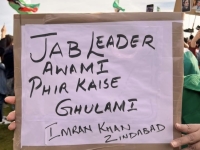 JAB LEADER
AWAMI
PHIR KAISE
GHULAMI
IMRAN KHAN
ZINDABAD